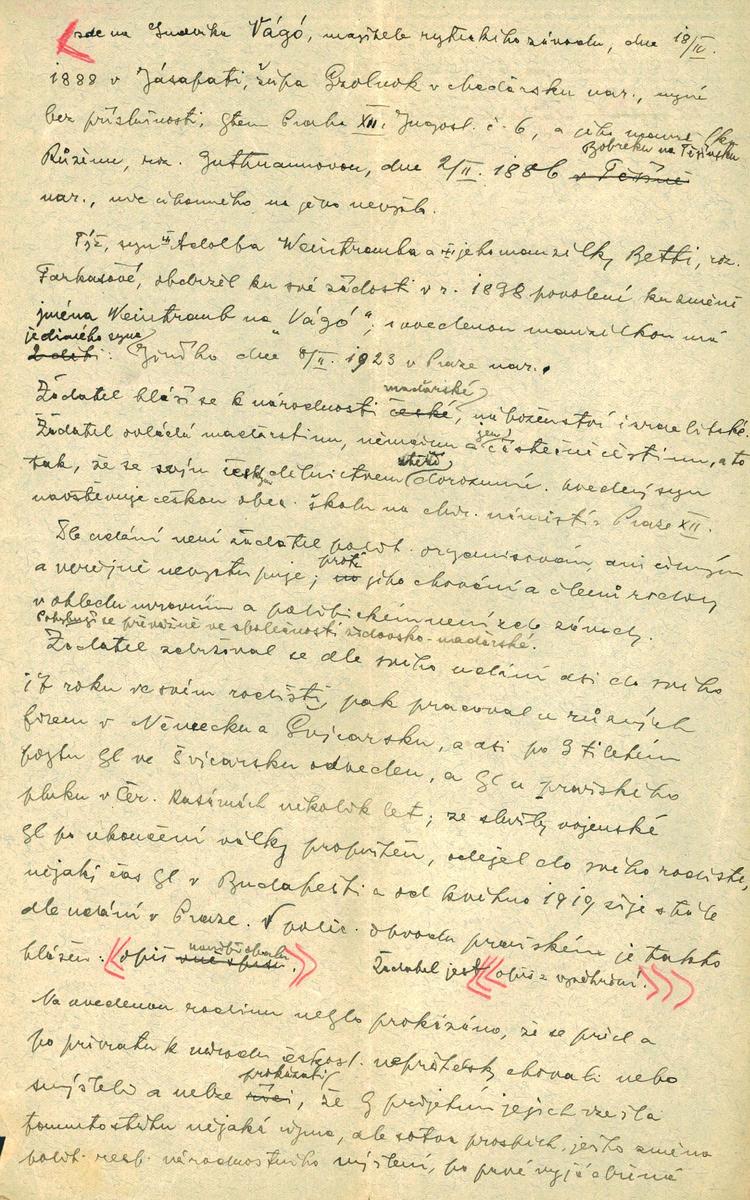 zde na Ludvíka Vágó, majitele ryteckého závodu, dne 18/IV.
1888 v Jásapáti, župa Szolnok v Maďarsku nar., nyní
bez příslušnosti, bytem Praha XII. Jugosl. č. 6, a jeho manželku
Bobreku na Těšínsku
Růženu, roz. Guthmannovou, dne 2/II. 1886 v Těšíně
nar., nic úhonného na jevo nevyšlo.
Týž, syn Adolfa Weintrauba a jeho manželky Betti, roz.
Farkašové, obdržel ku své žádosti v r. 1898 povolení ku změně
jména Weintraub na "Vágó"; s uvedenou manželkou má
jediného syna
2 děti: Jiřího dne 8/II. 1923 v Praze nar.
maďarské
Žadatel hlásí se k národnosti české, náboženství israelitské.
jen
Žadatel ovládá maďarštinu, němčinu a částečně češtinu, a to
tak, že se svým českým dělnictvem dorozumí. Uvedený syn
navštěvuje českou obec. školu na nám. v Praze XII.
Dle udání není žadatel polit. organisován, ani činným
proti
a veřejně nevystupuje; jeho chování a členů rodiny
v ohledu mravním a politickém není zde závady.
Pohybuje se převážně ve společnosti židovsko-maďarské.
Žadatel zdržoval se dle svého udání asi do svého
17 roku ve svém rodišti, pak pracoval u různých
firem v Německu a Švýcarsku, a asi po 3 tiletém
pobytu byl ve Švýcarsku odveden, a byl u pražského
pluku v Čer. kasárnách několik let; ze služby vojenské
byl po ukončení války propuštěn, odejel do svého rodiště,
nějaký čas byl v Budapešti a od května 1919 žije stále
dle udání v Praze. V polic. obvodu pražském je takto
hlášen: opis
Žadatel jest opis z vysvědčení.
Na uvedenou rodinu nebylo prokázáno, že se před a
po převratu k národu českosl. nepřátelsky chovali nebo
prokázati
smýšleli a nelze říci, že by přijetím jejich vzešla
tomuto státu nějaká újma, ale sotva prospěch, jeho změna
polit. resp. národnostního smýšlení, po prvé vyjádřená